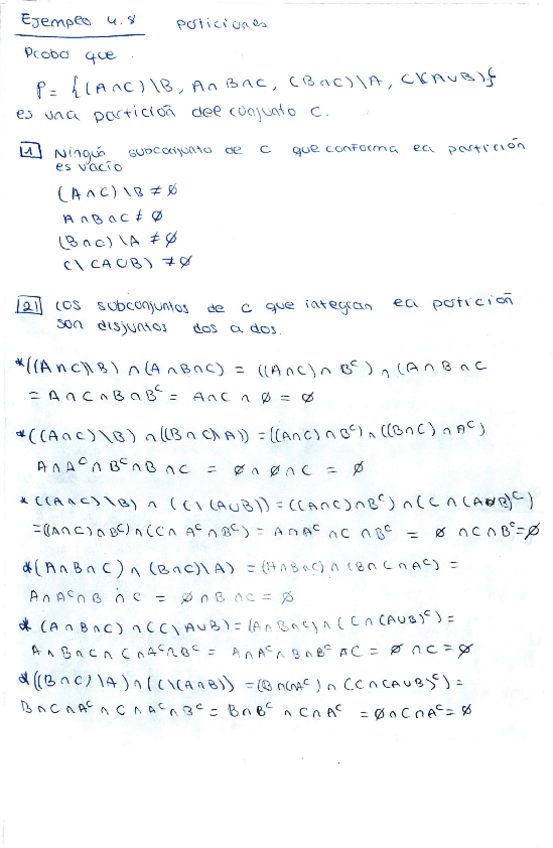 Ejemplo 4.8 Particiones
Probar que
P = {(A∩C)\B, A∩B∩C, (B∩C)\A, C\(A∪B)}
es una partición del conjunto C.
1 Ningún subconjunto de C que conforma la partición
es vacio
(A∩C)\B ≠ ∅
A∩B∩C ≠ ∅
(B∩C)\A ≠ ∅
C\(A∪B) ≠ ∅
2 los subconjuntos de C que integran la partición
son disjuntos dos a dos.
*((A∩C)\B) ∩ (A∩B∩C) = ((A∩C)∩Bᶜ) ∩ (A∩B∩C
= A∩C∩B∩Bᶜ = A∩C ∩ ∅ = ∅
*((A∩C)\B) ∩ ((B∩C)\A)) = ((A∩C)∩Bᶜ) ∩ ((B∩C)∩Aᶜ)
A∩Aᶜ∩Bᶜ∩B∩C = ∅∩∅∩C = ∅
* ((A∩C)\B) ∩ (C\(A∪B)) = ((A∩C)∩Bᶜ) ∩ (C∩(A∪B)ᶜ)
=((A∩C)∩Bᶜ) ∩ (C∩Aᶜ∩Bᶜ) = A∩Aᶜ∩C∩Bᶜ = ∅∩C∩Bᶜ=∅
*(A∩B∩C) ∩ (B∩C)\A) = (A∩B∩C) ∩ (B∩C∩Aᶜ) =
A∩Aᶜ∩B∩C = ∅∩B∩C = ∅
* (A∩B∩C) ∩ (C\A∪B) = (A∩B∩C) ∩ (C∩(A∪B)ᶜ) =
A∩B∩C∩C∩Aᶜ∩Bᶜ = A∩Aᶜ∩B∩Bᶜ∩C = ∅∩C = ∅
*((B∩C)\A) ∩ (C\(A∩B)) = (B∩C∩Aᶜ) ∩ (C∩(A∪B)ᶜ) =
B∩C∩Aᶜ∩C∩Aᶜ∩Bᶜ = B∩Bᶜ∩C∩Aᶜ = ∅∩C∩Aᶜ = ∅